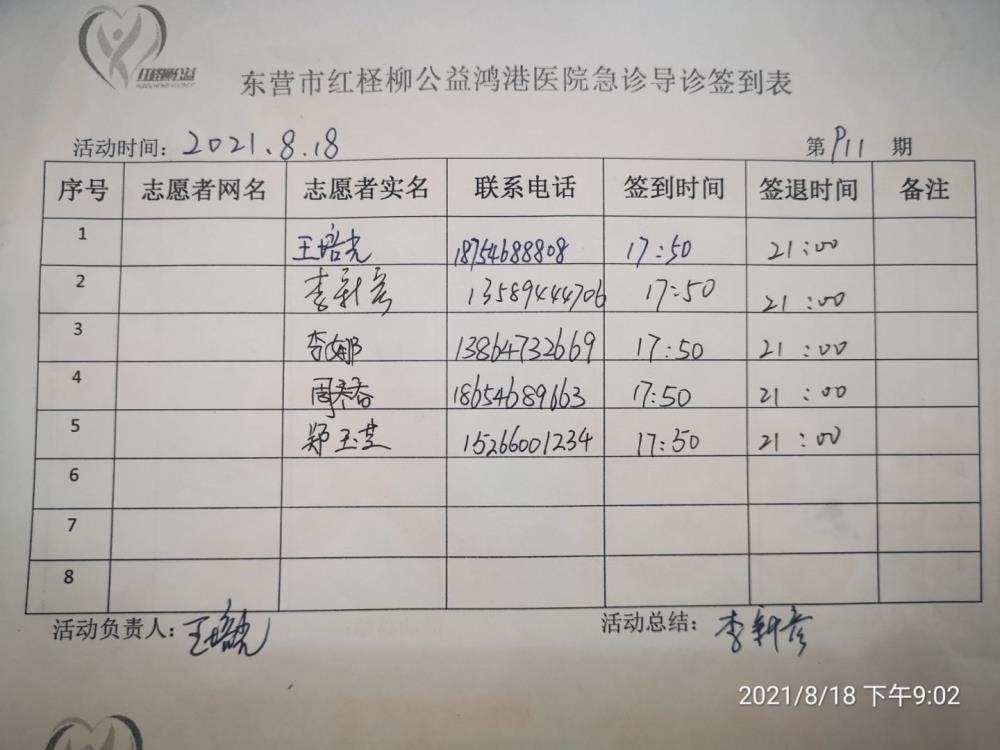 红柽柳公益
东营市红柽柳公益鸿港医院急诊导诊签到表
活动时间：2021.8.18 第911期
序号 志愿者网名 志愿者实名 联系电话 签到时间 签退时间 备注
1 王培光 18754688808 17:50 21:00
2 李新彦 13589444706 17:50 21:00
3 李娜 13864732669 17:50 21:00
4 周乔香 18654689663 17:50 21:00
5 郑玉芝 15266001234 17:50 21:00
6
7
8
活动负责人：王培光 活动总结：李新彦
2021/8/18 下午9:02